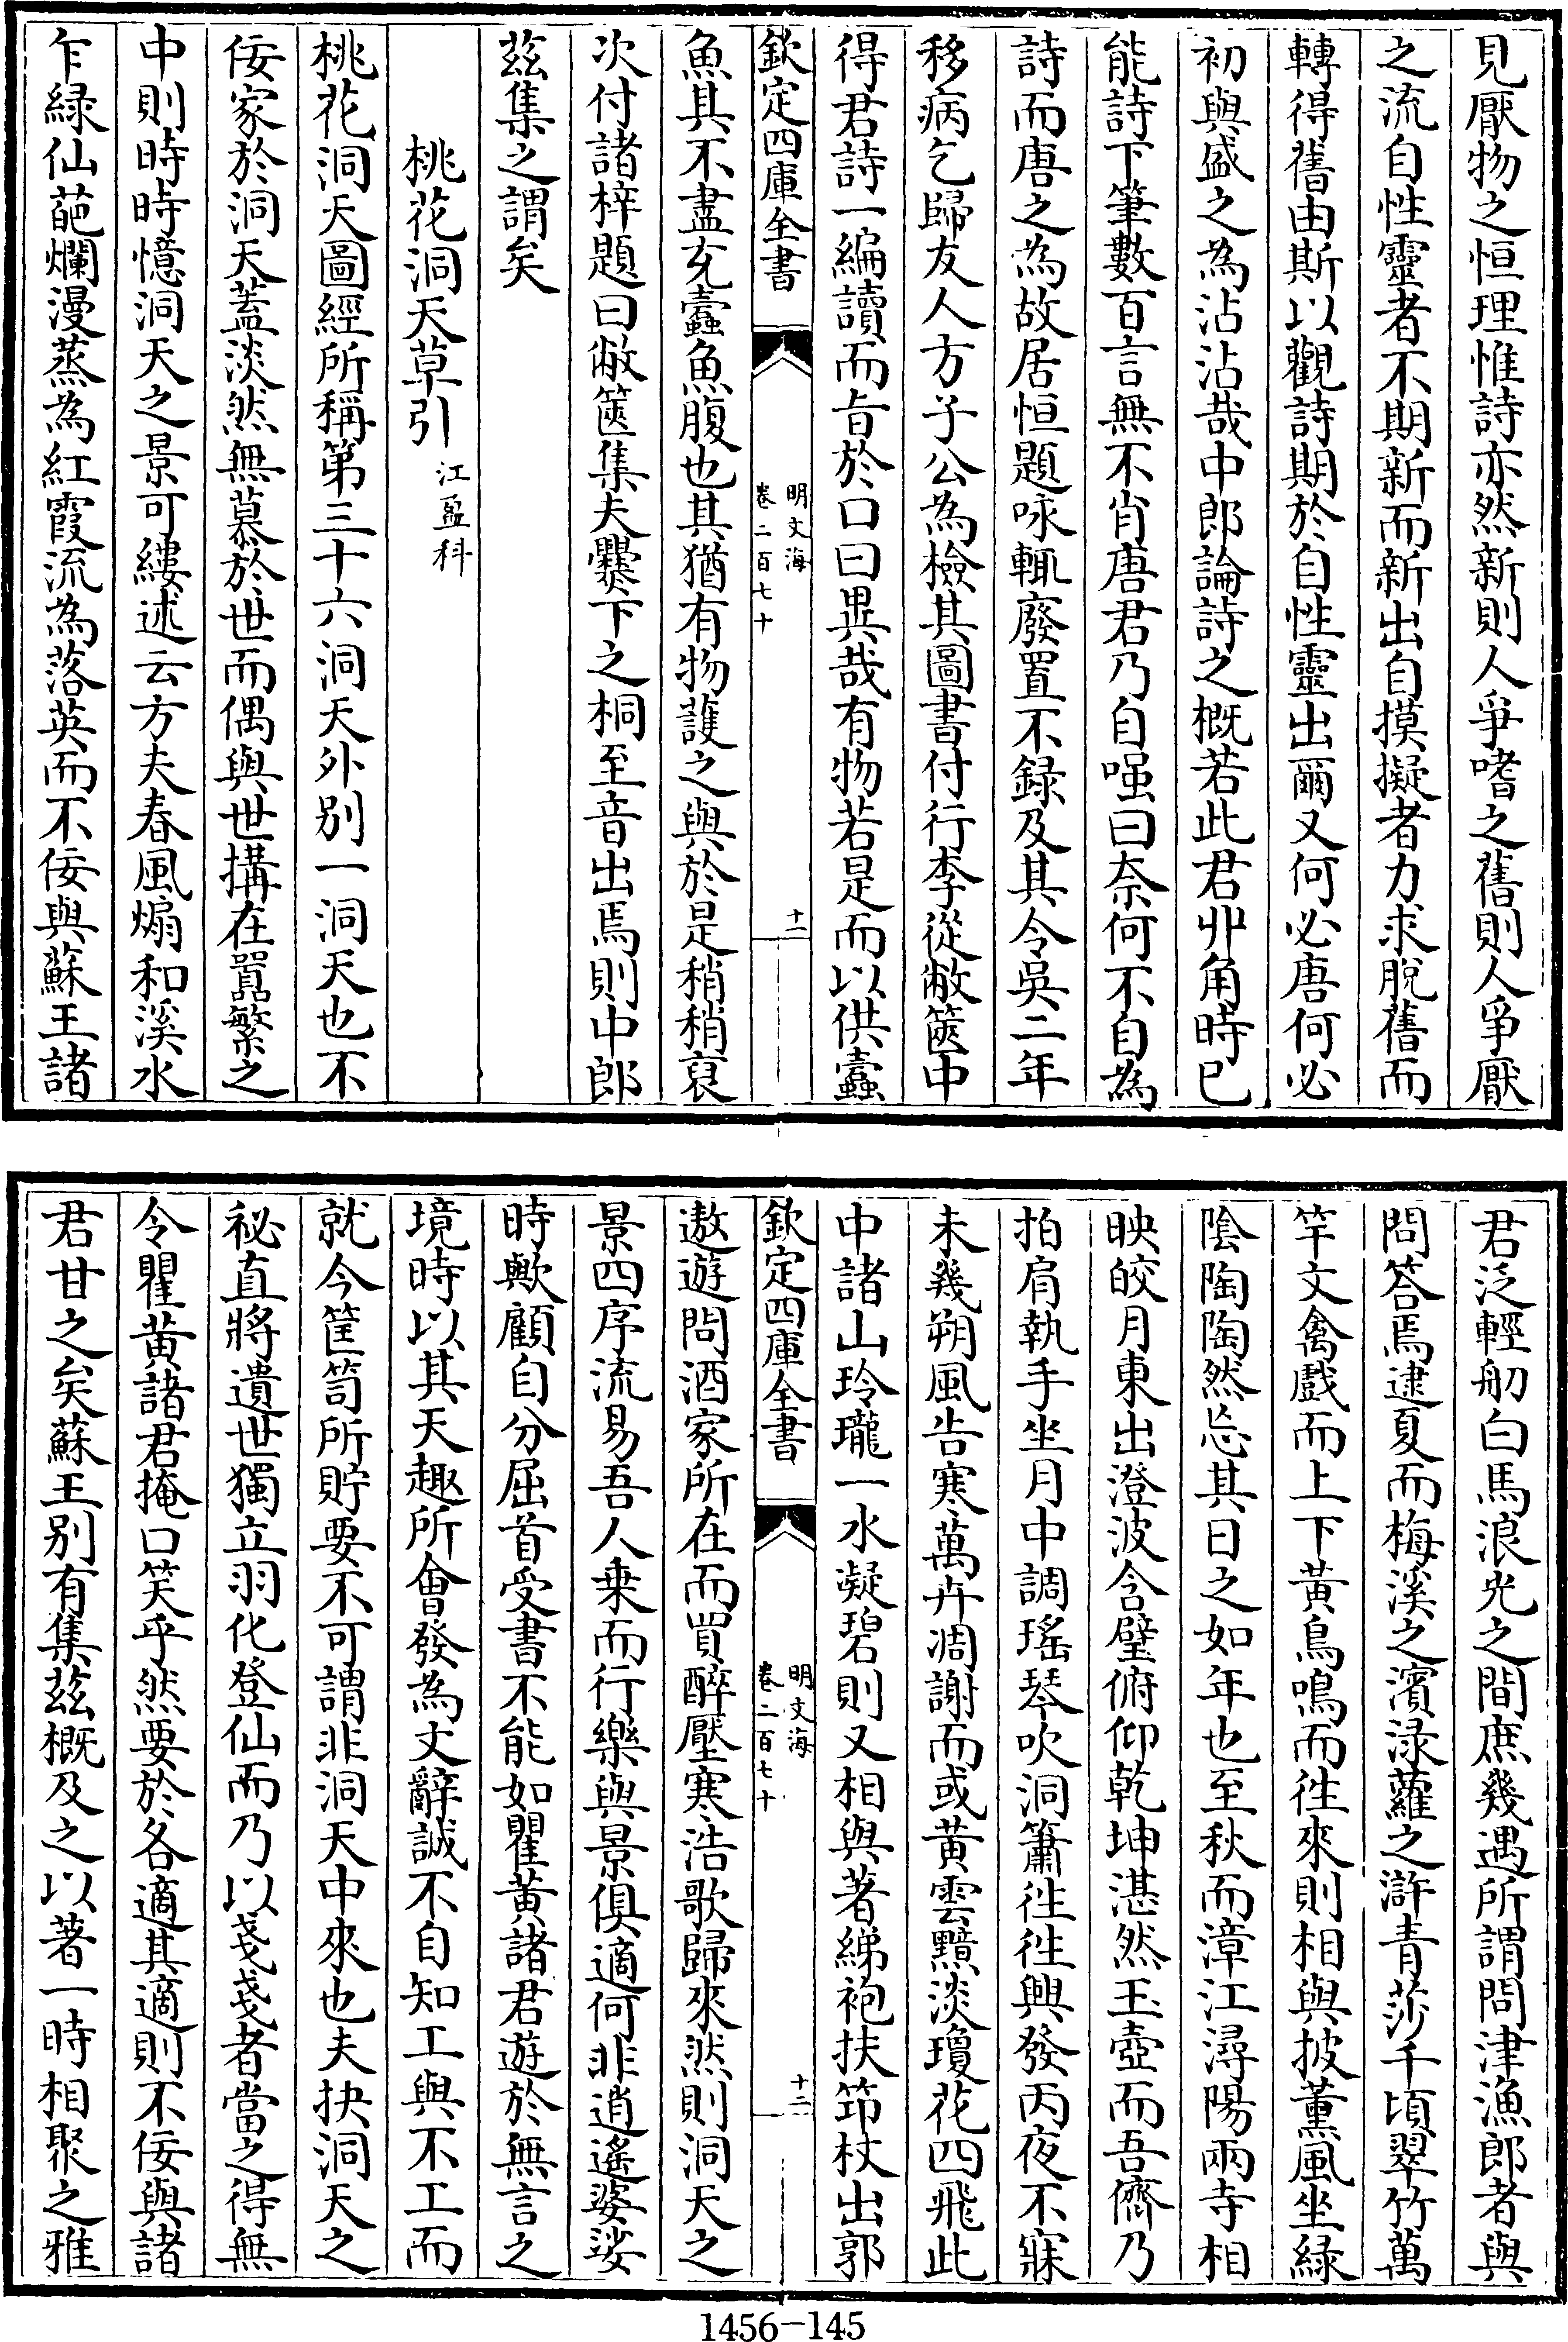 見厭物之恒理惟詩亦然新則人爭嗜之舊則人爭厭
之流自性靈者不期新而新出自摸擬者力求脫舊而
轉得舊由斯以觀詩期於自性靈出爾又何必唐何必
初與盛之為沾沾哉中郎論詩之概若此君丱角時已
能詩下筆數百言無不肖唐君乃自嗤曰奈何不自為
詩而唐之為故居恒題咏輒廢置不録及其令吳二年
移病乞歸友人方子公為檢其圖書付行李從敝篋中
得君詩一編讀而旨於口曰異哉有物若是而以供蠹
欽定四庫全書
明文海
卷二百七十
十一
魚其不盡充蠹魚腹也其猶有物護之與於是稍稍裒
次付諸梓題曰敝篋集夫爨下之桐至音出焉則中郎
茲集之謂矣
桃花洞天草引 江盈科
桃花洞天圖經所稱第三十六洞天外别一洞天也不
佞家於洞天蓋淡然無慕於世而偶與世搆在囂繁之
中則時時憶洞天之景可縷述云方夫春風煽和溪水
乍綠仙葩爛漫蒸為紅霞流為落英而不佞與蘇王諸
君泛輕舠白馬浪光之間庶幾遇所謂問津漁郎者與
問答焉逮夏而梅溪之濱淥蘿之滸青莎千頃翠竹萬
竿文禽戲而上下黄鳥鳴而徃來則相與披薰風坐綠
陰陶陶然忘其日之如年也至秋而漳江潯陽兩寺相
映皎月東出澄波含璧俯仰乾坤湛然玉壺而吾儕乃
拍肩執手坐月中調瑤琴吹洞簫徃徃興發丙夜不寐
未幾朔風告寒萬卉凋謝而或黄雲黯淡瓊花四飛此
中諸山玲瓏一水凝碧則又相與著綈袍扶筇杖出郭
欽定四庫全書
明文海
卷二百七十
十二
遨遊問酒家所在而買醉壓寒浩歌歸來然則洞天之
景四序流易吾人乘而行樂與景俱適何非逍遙婆娑
時歟顧自分屈首受書不能如瞿黄諸君遊於無言之
境時以其天趣所會發為文辭誠不自知工與不工而
就今筐笥所貯要不可謂非洞天中來也夫抉洞天之
秘直將遺世獨立羽化登仙而乃以戔戔者當之得無
令瞿黄諸君掩口笑乎然要於各適其適則不佞與諸
君甘之矣蘇王别有集茲概及之以著一時相聚之雅
1456-145